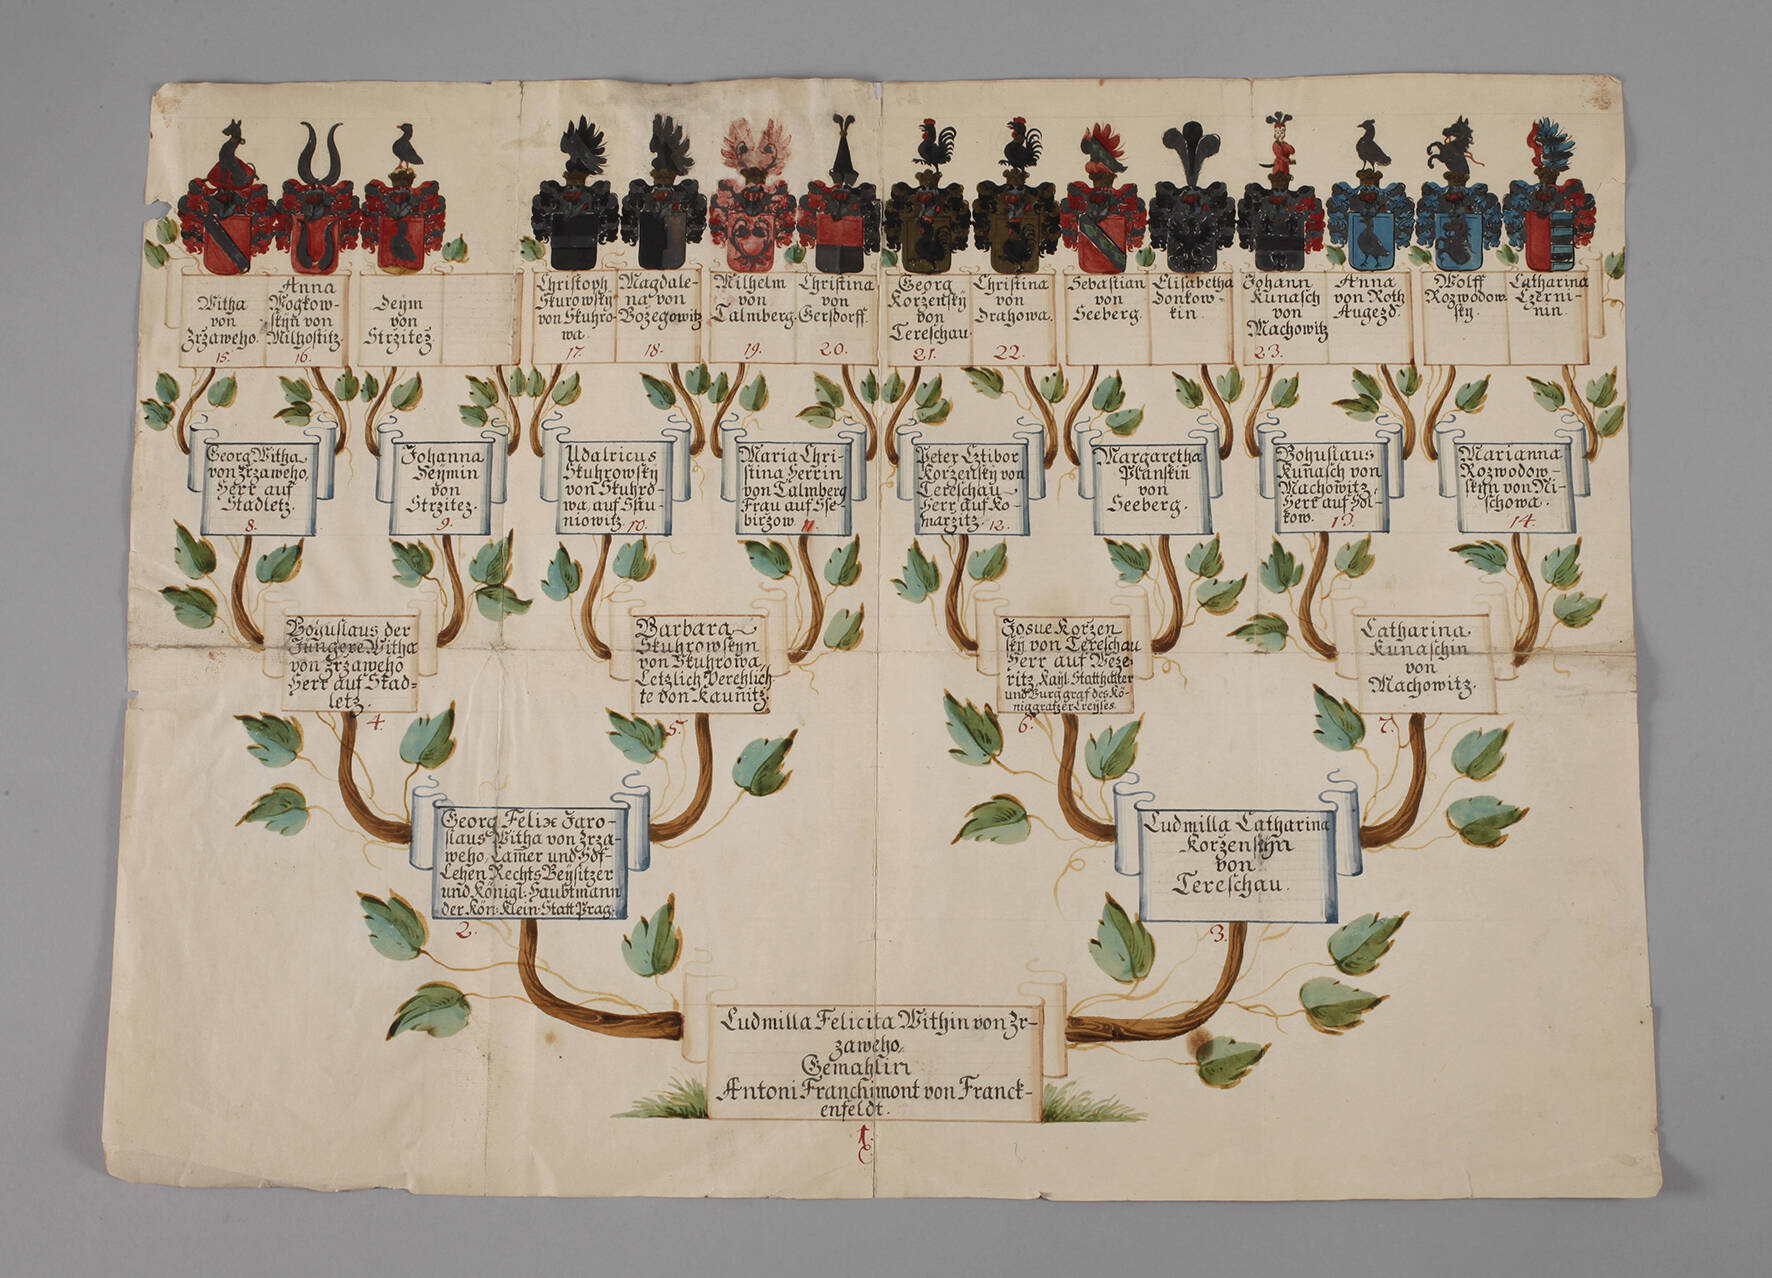 Witha
von
Zrzaweho.
15.
Anna
Wogkow-
skÿn von
Milhostitz.
16.
Seÿm
von
Strzitez.
Christoph
Skurowskÿ
von Skuhro-
wa.
17.
Magdale-
na von
Bozegowitz
18.
Wilhelm
von
Talmberg.
19.
Christina
von
Gersdorff.
20.
Georg
Korzenskÿ
von
Tereschau.
21.
Christina
von
Drahowa.
22.
Sebastian
von
Seeberg.
Elisabetha
Donkow-
kin.
Johann
Kunasch
von
Machowitz
23.
Anna
von Roth
Augezd.
Wolff
Rozwodow-
skÿ.
Catharina
Czerni-
nin.
Georg Witha
von Zrzaweho,
Herr auf
Stadletz.
8.
Johanna
Seÿmin
von
Strzitez.
9.
Udalricus
Skuhrowskÿ
von Skuhro-
wa, auf Stru-
niowitz.
10.
Maria Chri-
stina, Herrin
von Talmberg
Frau auf Sse-
birzow.
11.
Peter Cztibor
Korzenskÿ von
Tereschau
Herr auf Ko-
marzitz.
12.
Margaretha
Planskin
von
Seeberg.
Bohuslaus
Kunasch von
Machowitz,
Herr auf Hol-
kow.
13.
Marianna
Rozwodow-
skÿn von Ni-
schowa.
14.
Bohuslaus der
Jüngere Witha
von Zrzaweho
Herr auf Stad-
letz.
4.
Barbara
Skuhrowskÿn
von Skuhrowa,
Letzlich Verehlich-
te von Kaunitz.
5.
Josue Korzen
skÿ von Tereschau
Herr auf Weze-
ritz, Kaÿl. Statthalter
und Burggraf des Kö-
niggratzer Creÿses.
6.
Catharina
Kunaschin
von
Machowitz.
7.
Georg Felix Jaro-
slaus Witha von Zrza-
weho, Camer und Hof-
Lehen Rechts Beÿsitzer
und Königl: Haubtmann
der Kön: Klein Statt Prag.
2.
Ludmilla Catharina
Korzenskÿn
von
Tereschau.
3.
Ludmilla Felicita Within von Zr-
zaweho,
Gemahlin
Antoni Franchimont von Franck-
enfeldt.
1.